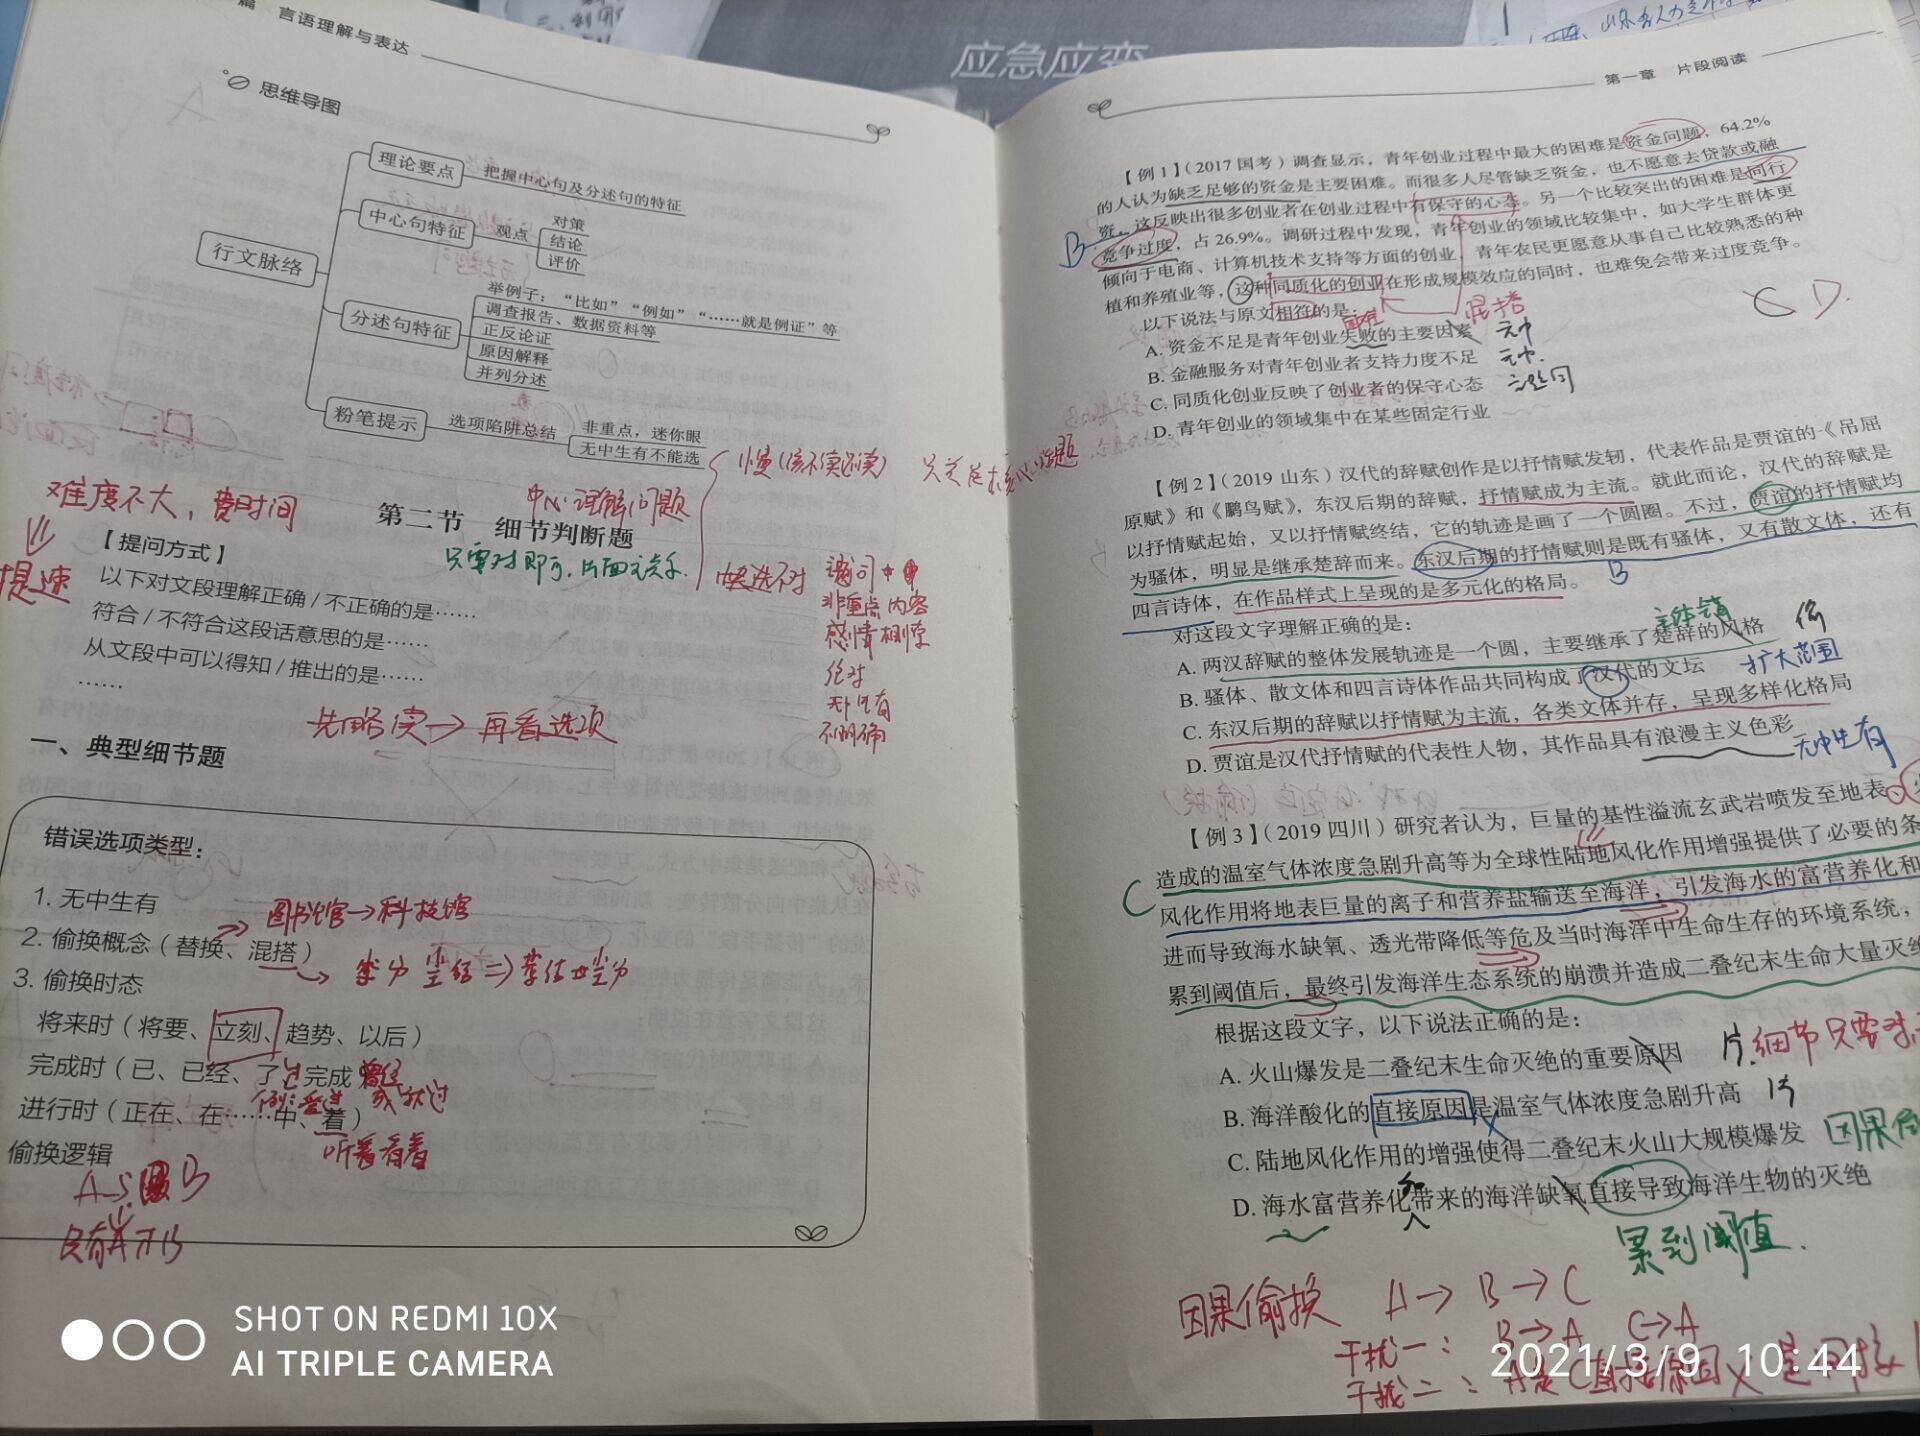 应急应变
篇 言语理解与表达
思维导图
行文脉络
理论要点
把握中心句及分述句的特征
中心句特征
观点
对策
结论
评价
分述句特征
举例子：“比如”“例如”“……就是例证”等
调查报告、数据资料等
正反论证
原因解释
并列分述
粉笔提示
选项陷阱总结
非重点，迷你眼
无中生有不能选
慢(该不读还读)
中心理解问题
难度不大，费时间
第二节 细节判断题
只需对即可，片面无关系.
提速
快选不对
非重点内容
绝对
不明确
【提问方式】
以下对文段理解正确/不正确的是……
符合/不符合这段话意思的是……
从文段中可以得知/推出的是……
……
先略读→再看选项
一、典型细节题
错误选项类型：
1. 无中生有
2. 偷换概念（替换、混搭）
图书馆→科技馆
3. 偷换时态
将来时（将要、立刻、趋势、以后）
完成时（已、已经、了、过 完成 曾经
进行时（正在、在……中、着）
听着看着
偷换逻辑
只有A才B
第一章 片段阅读
【例1】（2017国考）调查显示，青年创业过程中最大的困难是资金问题，64.2%
的人认为缺乏足够的资金是主要困难。而很多人尽管缺乏资金，也不愿意去贷款或融
资，这反映出很多创业者在创业过程中有保守的心态。另一个比较突出的困难是同行
竞争过度，占26.9%。调研过程中发现，青年创业的领域比较集中，如大学生群体更
倾向于电商、计算机技术支持等方面的创业，青年农民更愿意从事自己比较熟悉的种
植和养殖业等，这种同质化的创业在形成规模效应的同时，也难免会带来过度竞争。
以下说法与原文相符的是：
困难
混搭
A. 资金不足是青年创业失败的主要因素 无中
B. 金融服务对青年创业者支持力度不足 无中.
C. 同质化创业反映了创业者的保守心态
D. 青年创业的领域集中在某些固定行业
D.
B
【例2】（2019山东）汉代的辞赋创作是以抒情赋发轫，代表作品是贾谊的《吊屈
原赋》和《鹏鸟赋》，东汉后期的辞赋，抒情赋成为主流。就此而论，汉代的辞赋是
以抒情赋起始，又以抒情赋终结，它的轨迹是画了一个圆圈。不过，贾谊的抒情赋均
为骚体，明显是继承楚辞而来。东汉后期的抒情赋则是既有骚体，又有散文体，还有
四言诗体，在作品样式上呈现的是多元化的格局。
B
对这段文字理解正确的是：
主体错
A. 两汉辞赋的整体发展轨迹是一个圆，主要继承了楚辞的风格 偷
B. 骚体、散文体和四言诗体作品共同构成了汉代的文坛 扩大范围
C. 东汉后期的辞赋以抒情赋为主流，各类文体并存，呈现多样化格局
D. 贾谊是汉代抒情赋的代表性人物，其作品具有浪漫主义色彩 无中生有
【例3】（2019四川）研究者认为，巨量的基性溢流玄武岩喷发至地表
造成的温室气体浓度急剧升高等为全球性陆地风化作用增强提供了必要的条
C
风化作用将地表巨量的离子和营养盐输送至海洋，引发海水的富营养化和
进而导致海水缺氧、透光带降低等危及当时海洋中生命生存的环境系统，
累到阈值后，最终引发海洋生态系统的崩溃并造成二叠纪末生命大量灭绝
根据这段文字，以下说法正确的是：
A. 火山爆发是二叠纪末生命灭绝的重要原因
细节只要对
B. 海洋酸化的直接原因是温室气体浓度急剧升高
C. 陆地风化作用的增强使得二叠纪末火山大规模爆发 因果
D. 海水富营养化带来的海洋缺氧直接导致海洋生物的灭绝
累到阈值.
因果偷换 A→B→C
干扰一： B→A C→A
干扰二：A是C直接原因×
SHOT ON REDMI 10X
AI TRIPLE CAMERA
2021/3/9 10:44